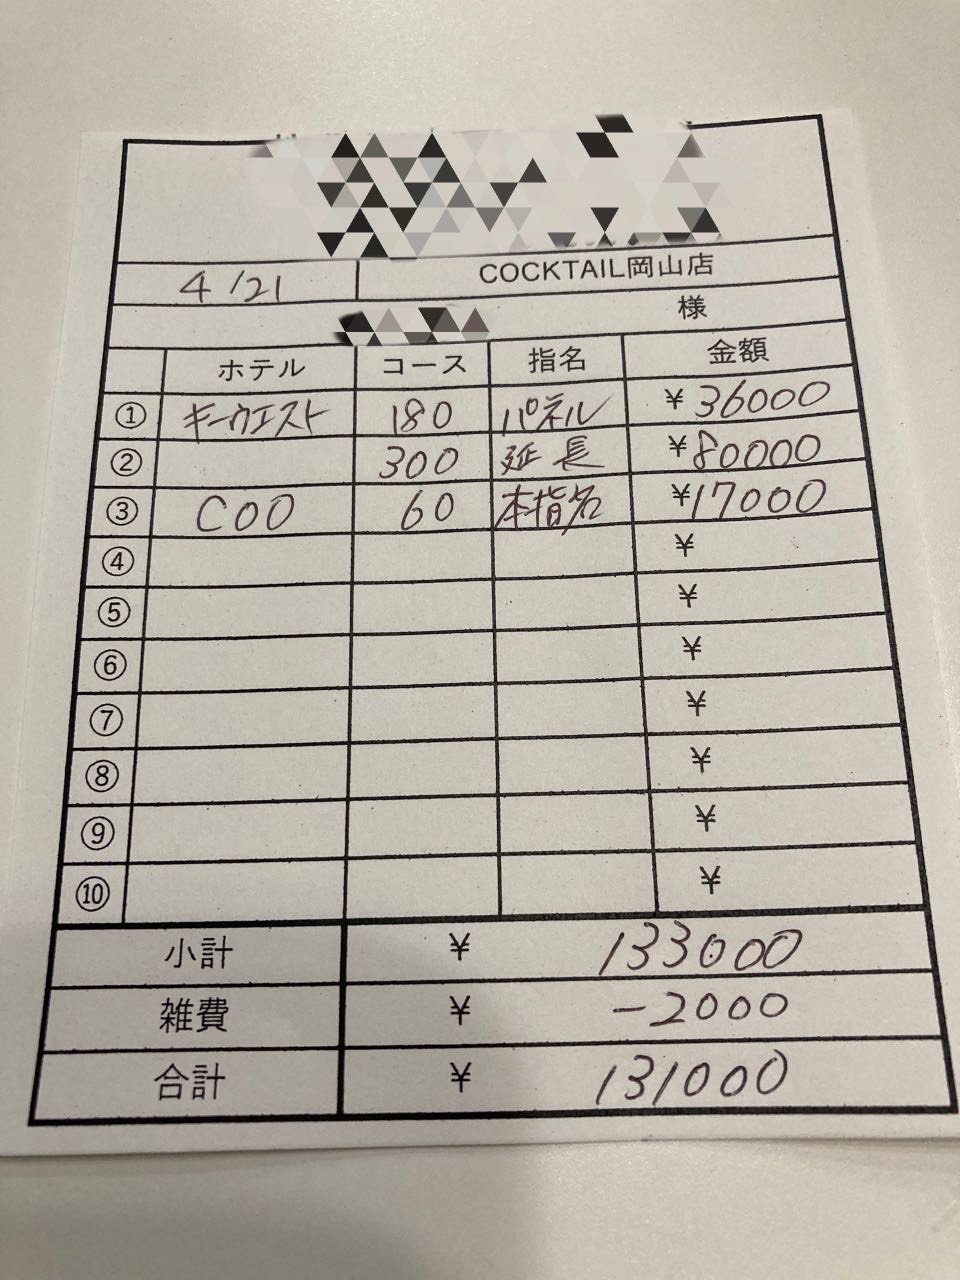 4/21 COCKTAIL岡山店
様
ホテル コース 指名 金額
① キーウエスト 180 パネル ¥36000
② 300 延長 ¥80000
③ COO 60 本指名 ¥17000
④ ¥
⑤ ¥
⑥ ¥
⑦ ¥
⑧ ¥
⑨ ¥
⑩ ¥
小計 ¥ 133000
雑費 ¥ -2000
合計 ¥ 131000